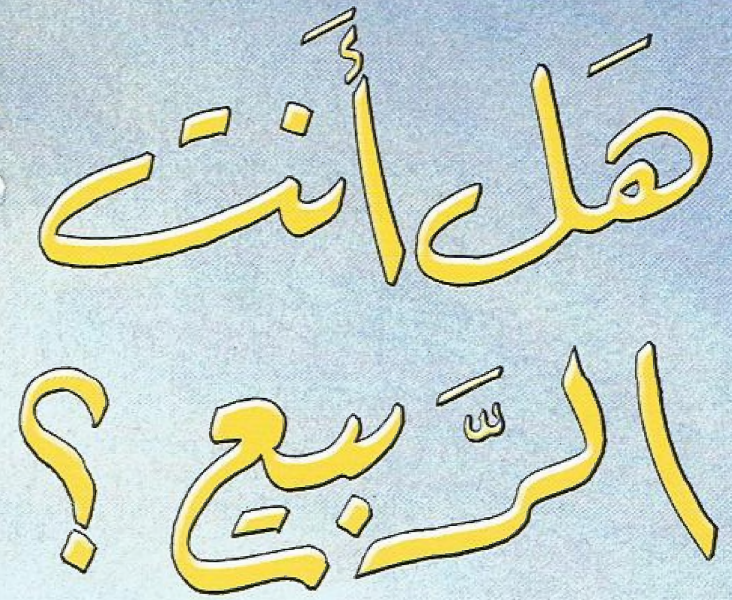 هَل أَنت
الرَّبيع ؟